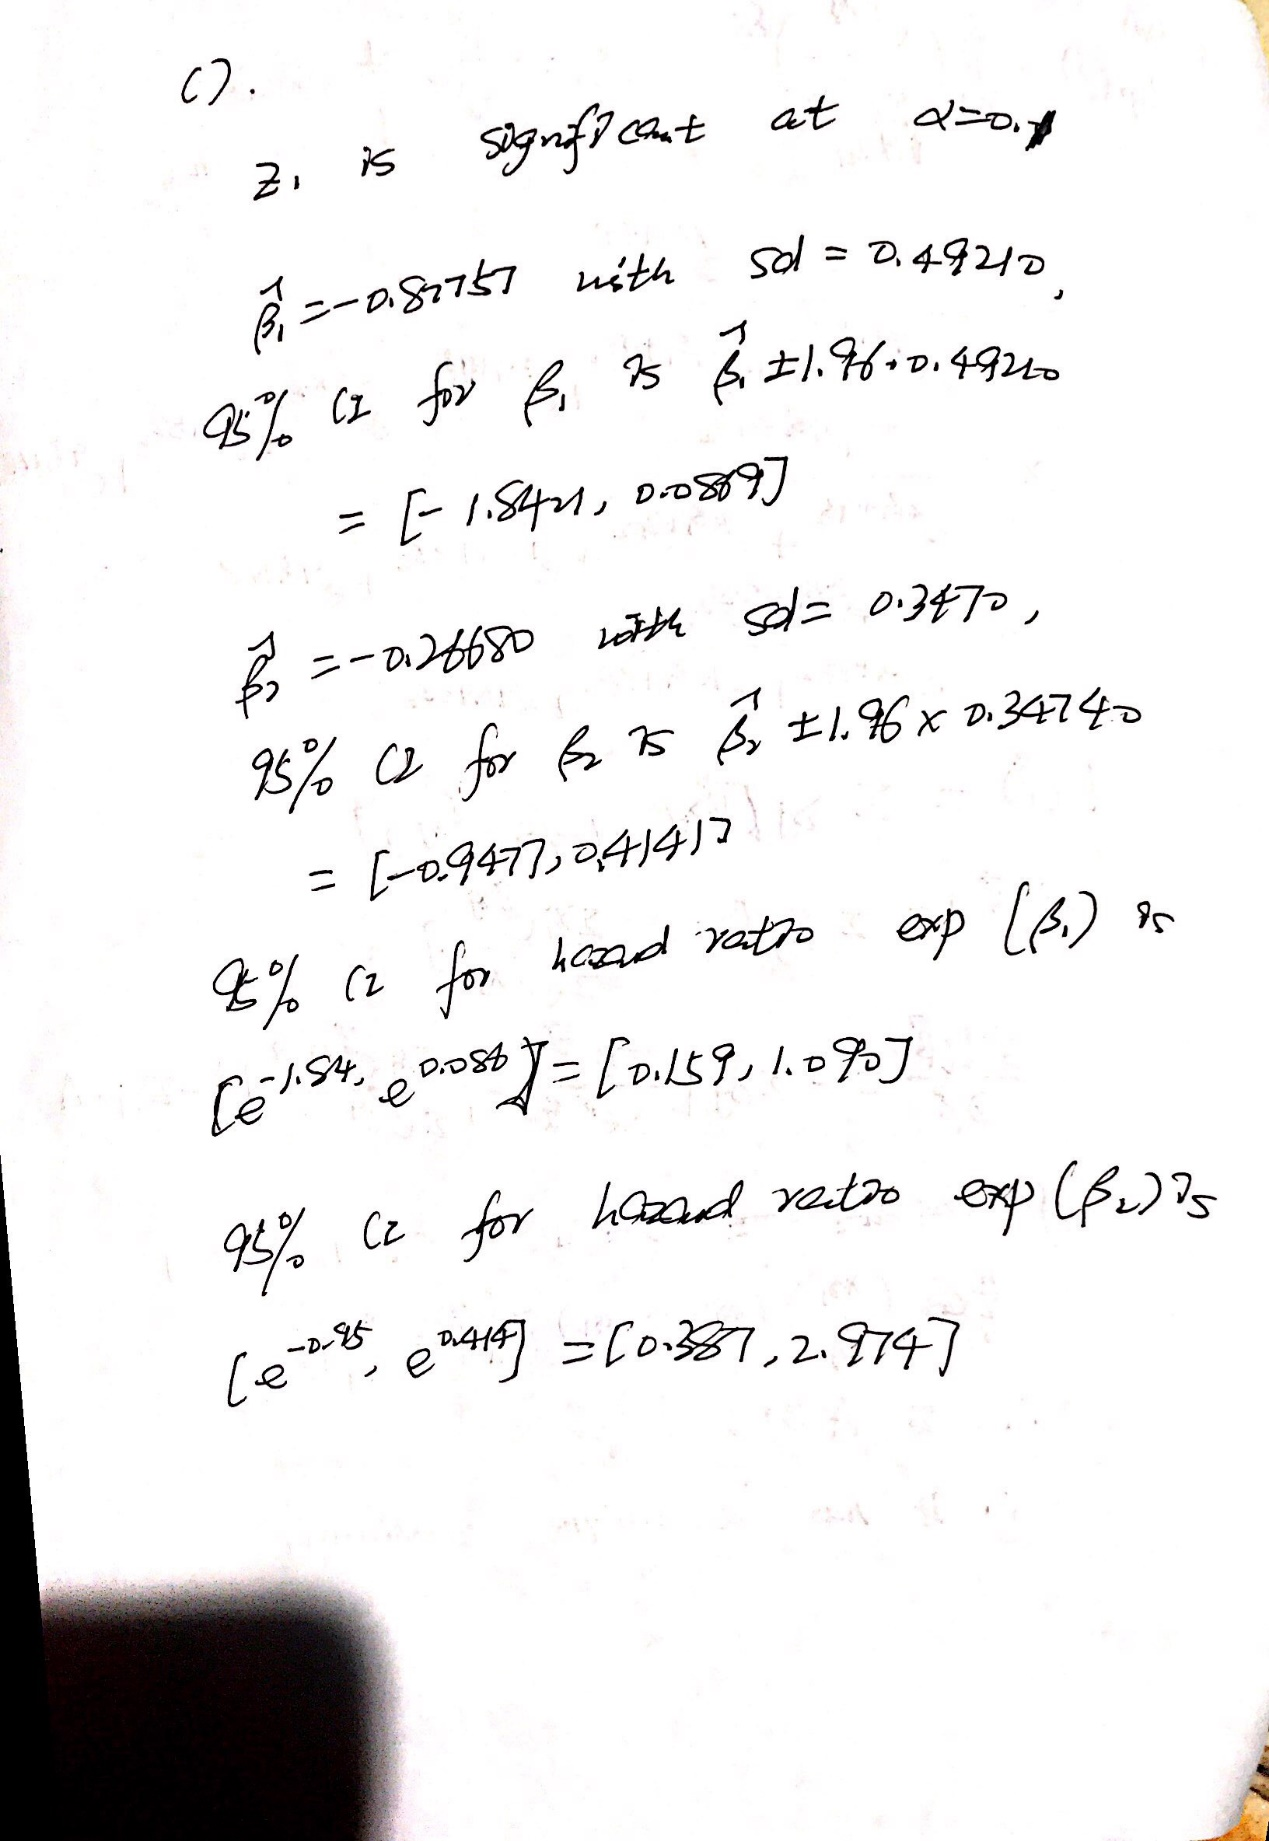 C).
Z₁ is significant at α=0.1
β̂₁ = -0.87757 with sd = 0.49210,
95% CI for β₁ is β̂₁ ±1.96·0.49210
= [-1.8421, 0.0869]
β̂₂ = -0.26680 with sd = 0.3470,
95% CI for β₂ is β̂₂ ±1.96 x 0.34740
= [-0.9477, 0.4141]
95% CI for hazard ratio exp (β₁) is
[e^-1.84, e^0.086] = [0.159, 1.090]
95% CI for hazard ratio exp (β₂) is
[e^-0.95, e^0.414] = [0.387, 2.974]